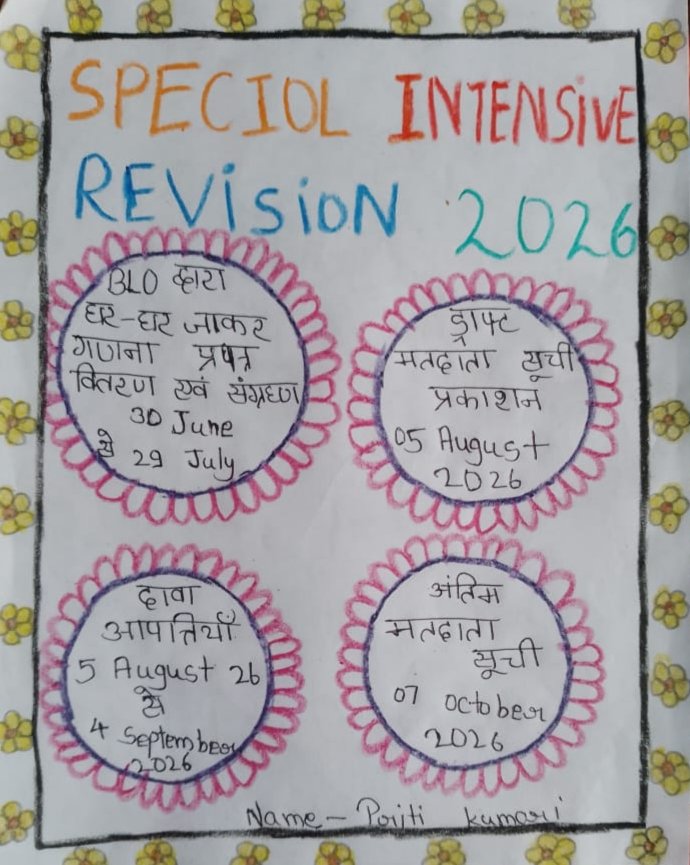 SPECIOL INTENSIVE
REVISION 2026
BLO द्वारा
घर-घर जाकर
गणना प्रपत्र
वितरण एवं संग्रहण
30 June
से 29 July
ड्राफ्ट
मतदाता सूची
प्रकाशन
05 August
2026
दावा
आपत्तियाँ
5 August 26
से
4 September
2026
अंतिम
मतदाता
सूची
07 October
2026
Name - Priti kumari